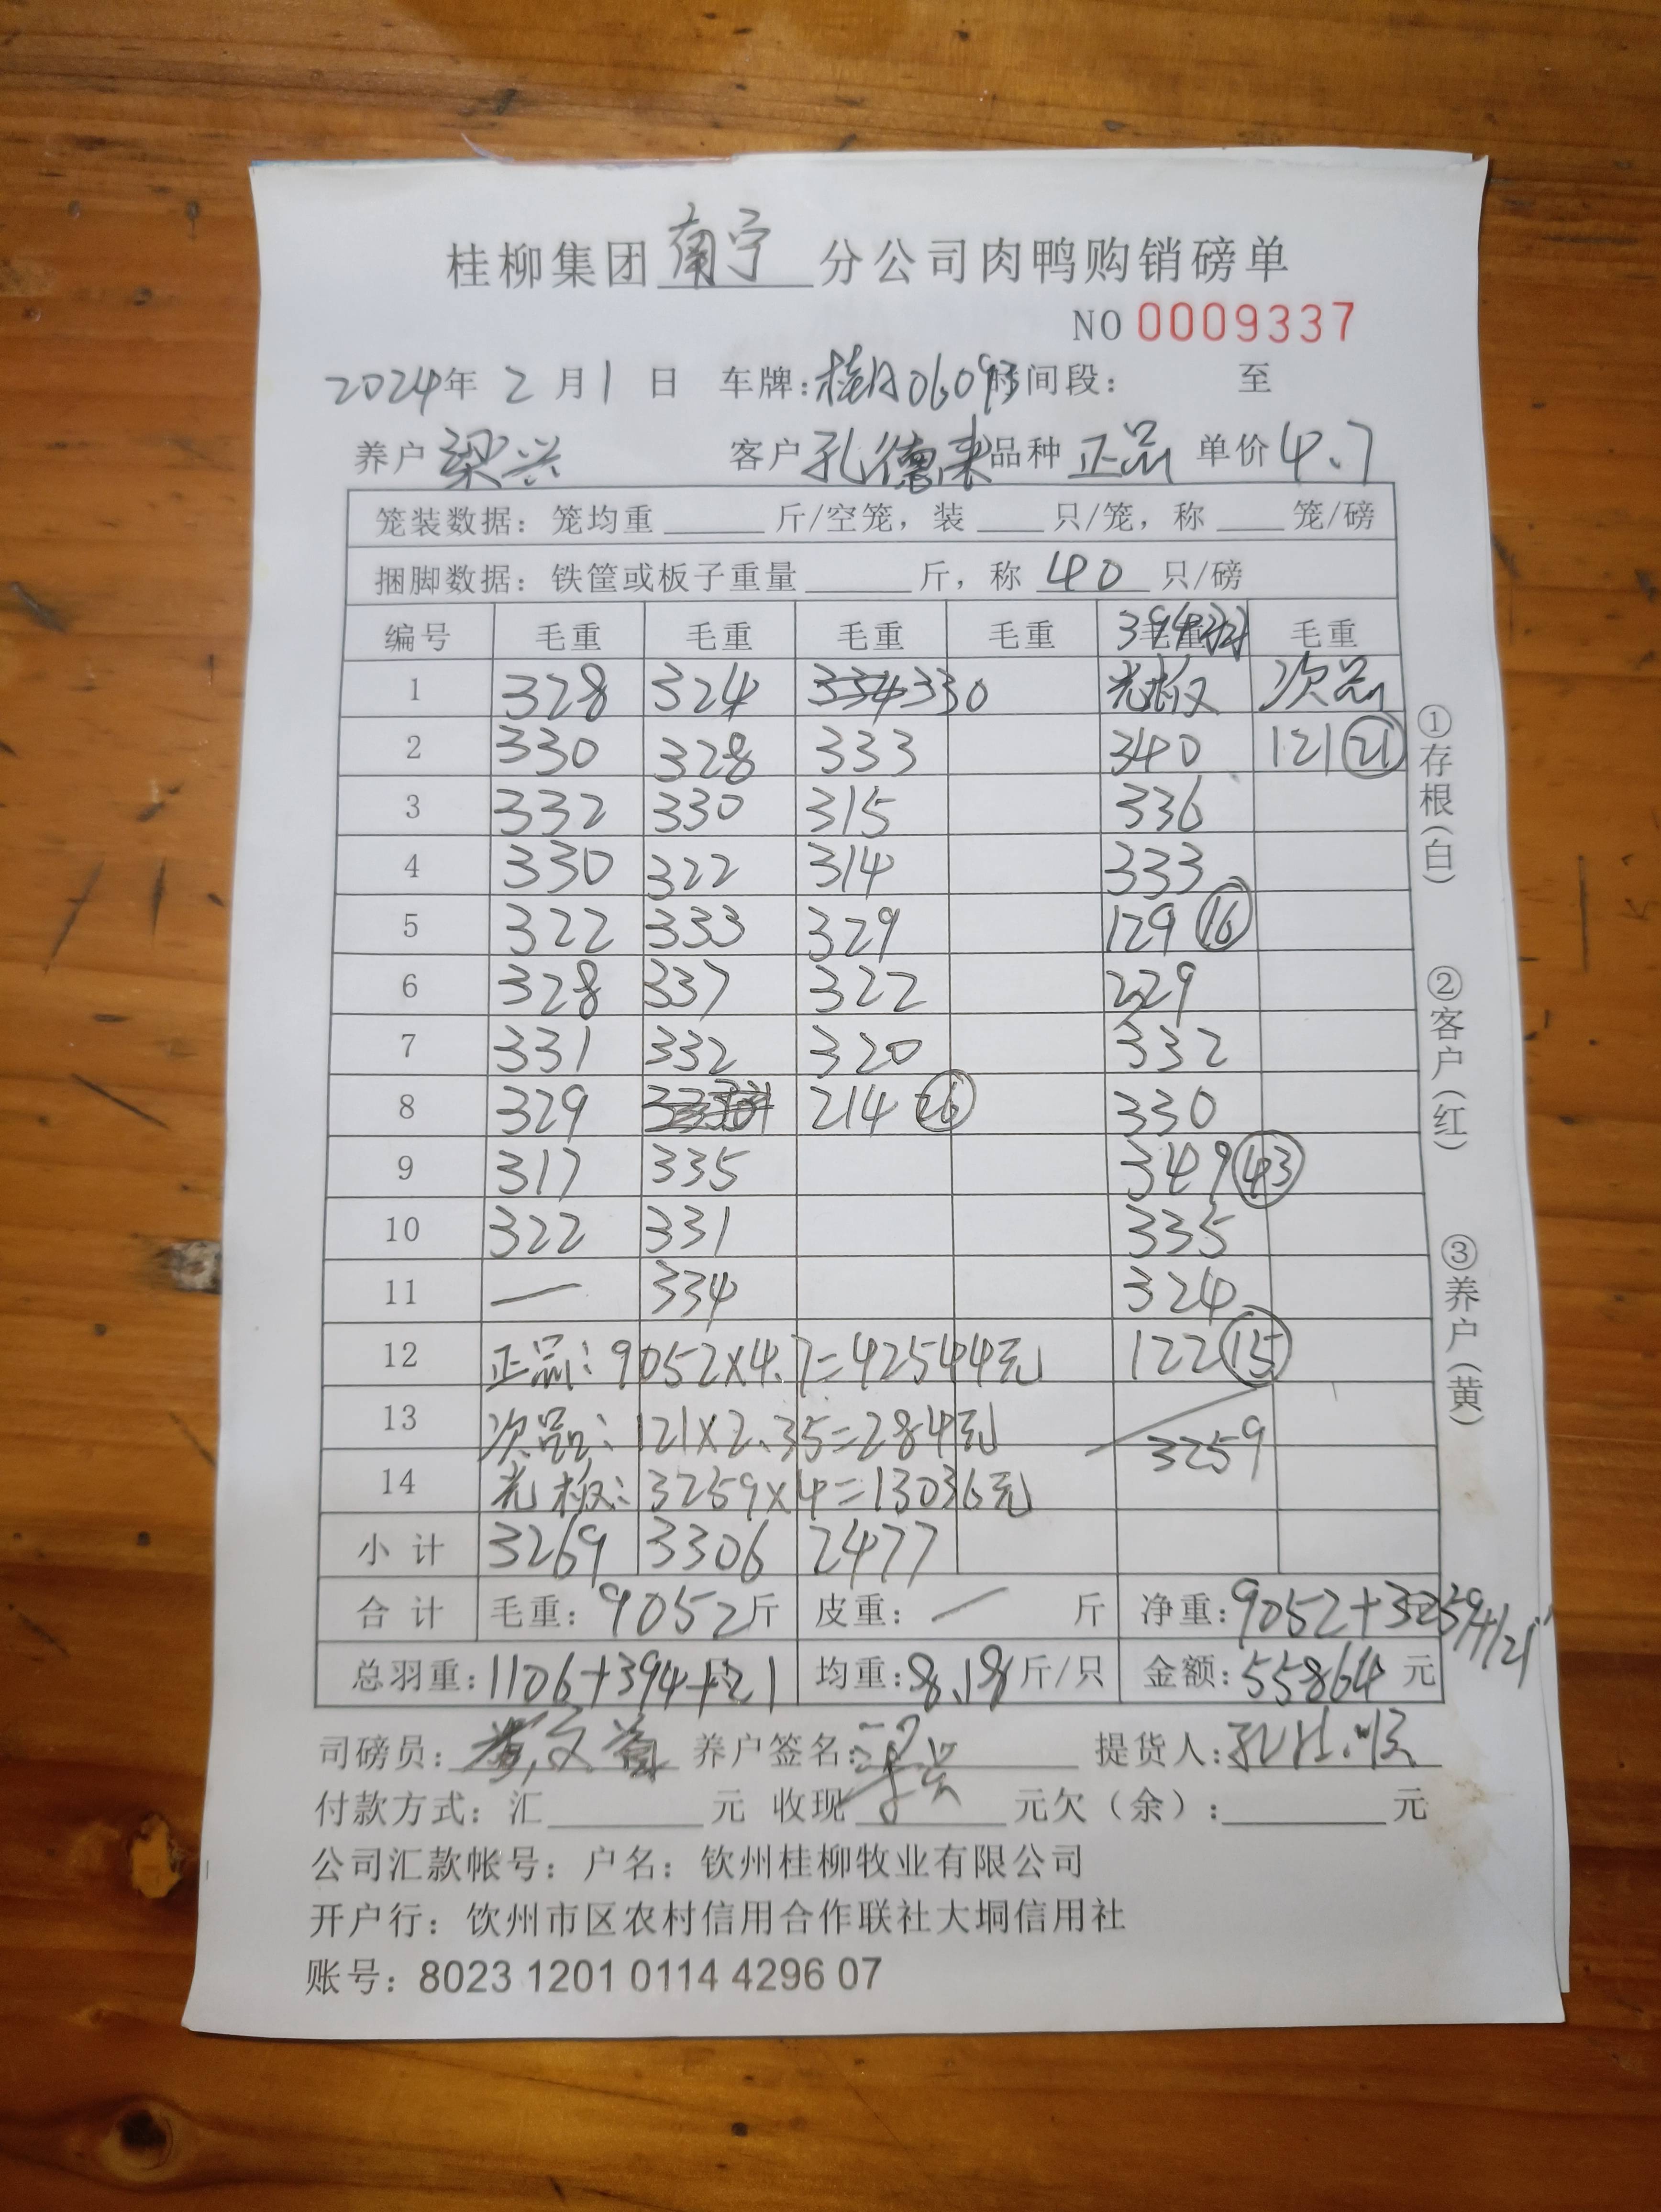 桂柳集团南宁分公司肉鸭购销磅单
NO 0009337
2024年 2 月 1 日 车牌: 桂A0609 时间段: 至
养户 梁兴 客户 孔德来 品种 正品 单价 4.7
笼装数据: 笼均重 斤/空笼, 装 只/笼, 称 笼/磅
捆脚数据: 铁筐或板子重量 斤, 称 40 只/磅
编号 毛重 毛重 毛重 毛重 毛重 394 毛重
1 328 324 334 330 光板 次品
2 330 328 333 340 121 21
3 332 330 315 336
4 330 322 314 333
5 322 333 329 129 16
6 328 337 322 329
7 331 332 320 332
8 329 214 26 330
9 317 335 349 43
10 322 331 335
11 一 334 324
12 正品: 9052×4.7=42544元 122 15
13 次品: 121×2.35=284元 3259
14 光板: 3259×4=13036元
小计 3269 3306 2477
合计 毛重: 9052斤 皮重: 一 斤 净重: 9052+3259+121
总羽重: 1106+394+21 均重: 8.18斤/只 金额: 55864 元
司磅员: 养户签名: 梁兴 提货人:
付款方式: 汇 元 收现 元欠(余): 元
公司汇款帐号: 户名: 钦州桂柳牧业有限公司
开户行: 钦州市区农村信用合作联社大垌信用社
账号: 8023 1201 0114 4296 07
①存根(白)
②客户(红)
③养户(黄)